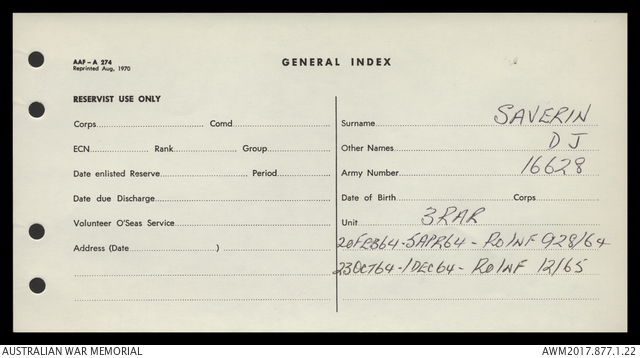 AAF-A 274
Reprinted Aug, 1970
GENERAL INDEX
RESERVIST USE ONLY
Corps Comd
ECN Rank Group
Date enlisted Reserve Period
Date due Discharge
Volunteer O'Seas Service
Address (Date )
Surname SAVERIN
Other Names D J
Army Number 16628
Date of Birth Corps
Unit 3RAR
20FEB64-5APR64-RO INF 928/64
23OCT64-1DEC64-RO INF 12/65
AUSTRALIAN WAR MEMORIAL AWM2017.877.1.22